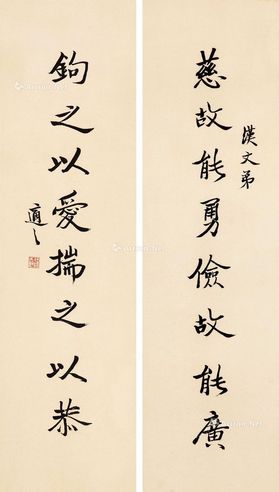 漢文弟
慈故能勇儉故能廣
鉤之以愛揣之以恭
適之